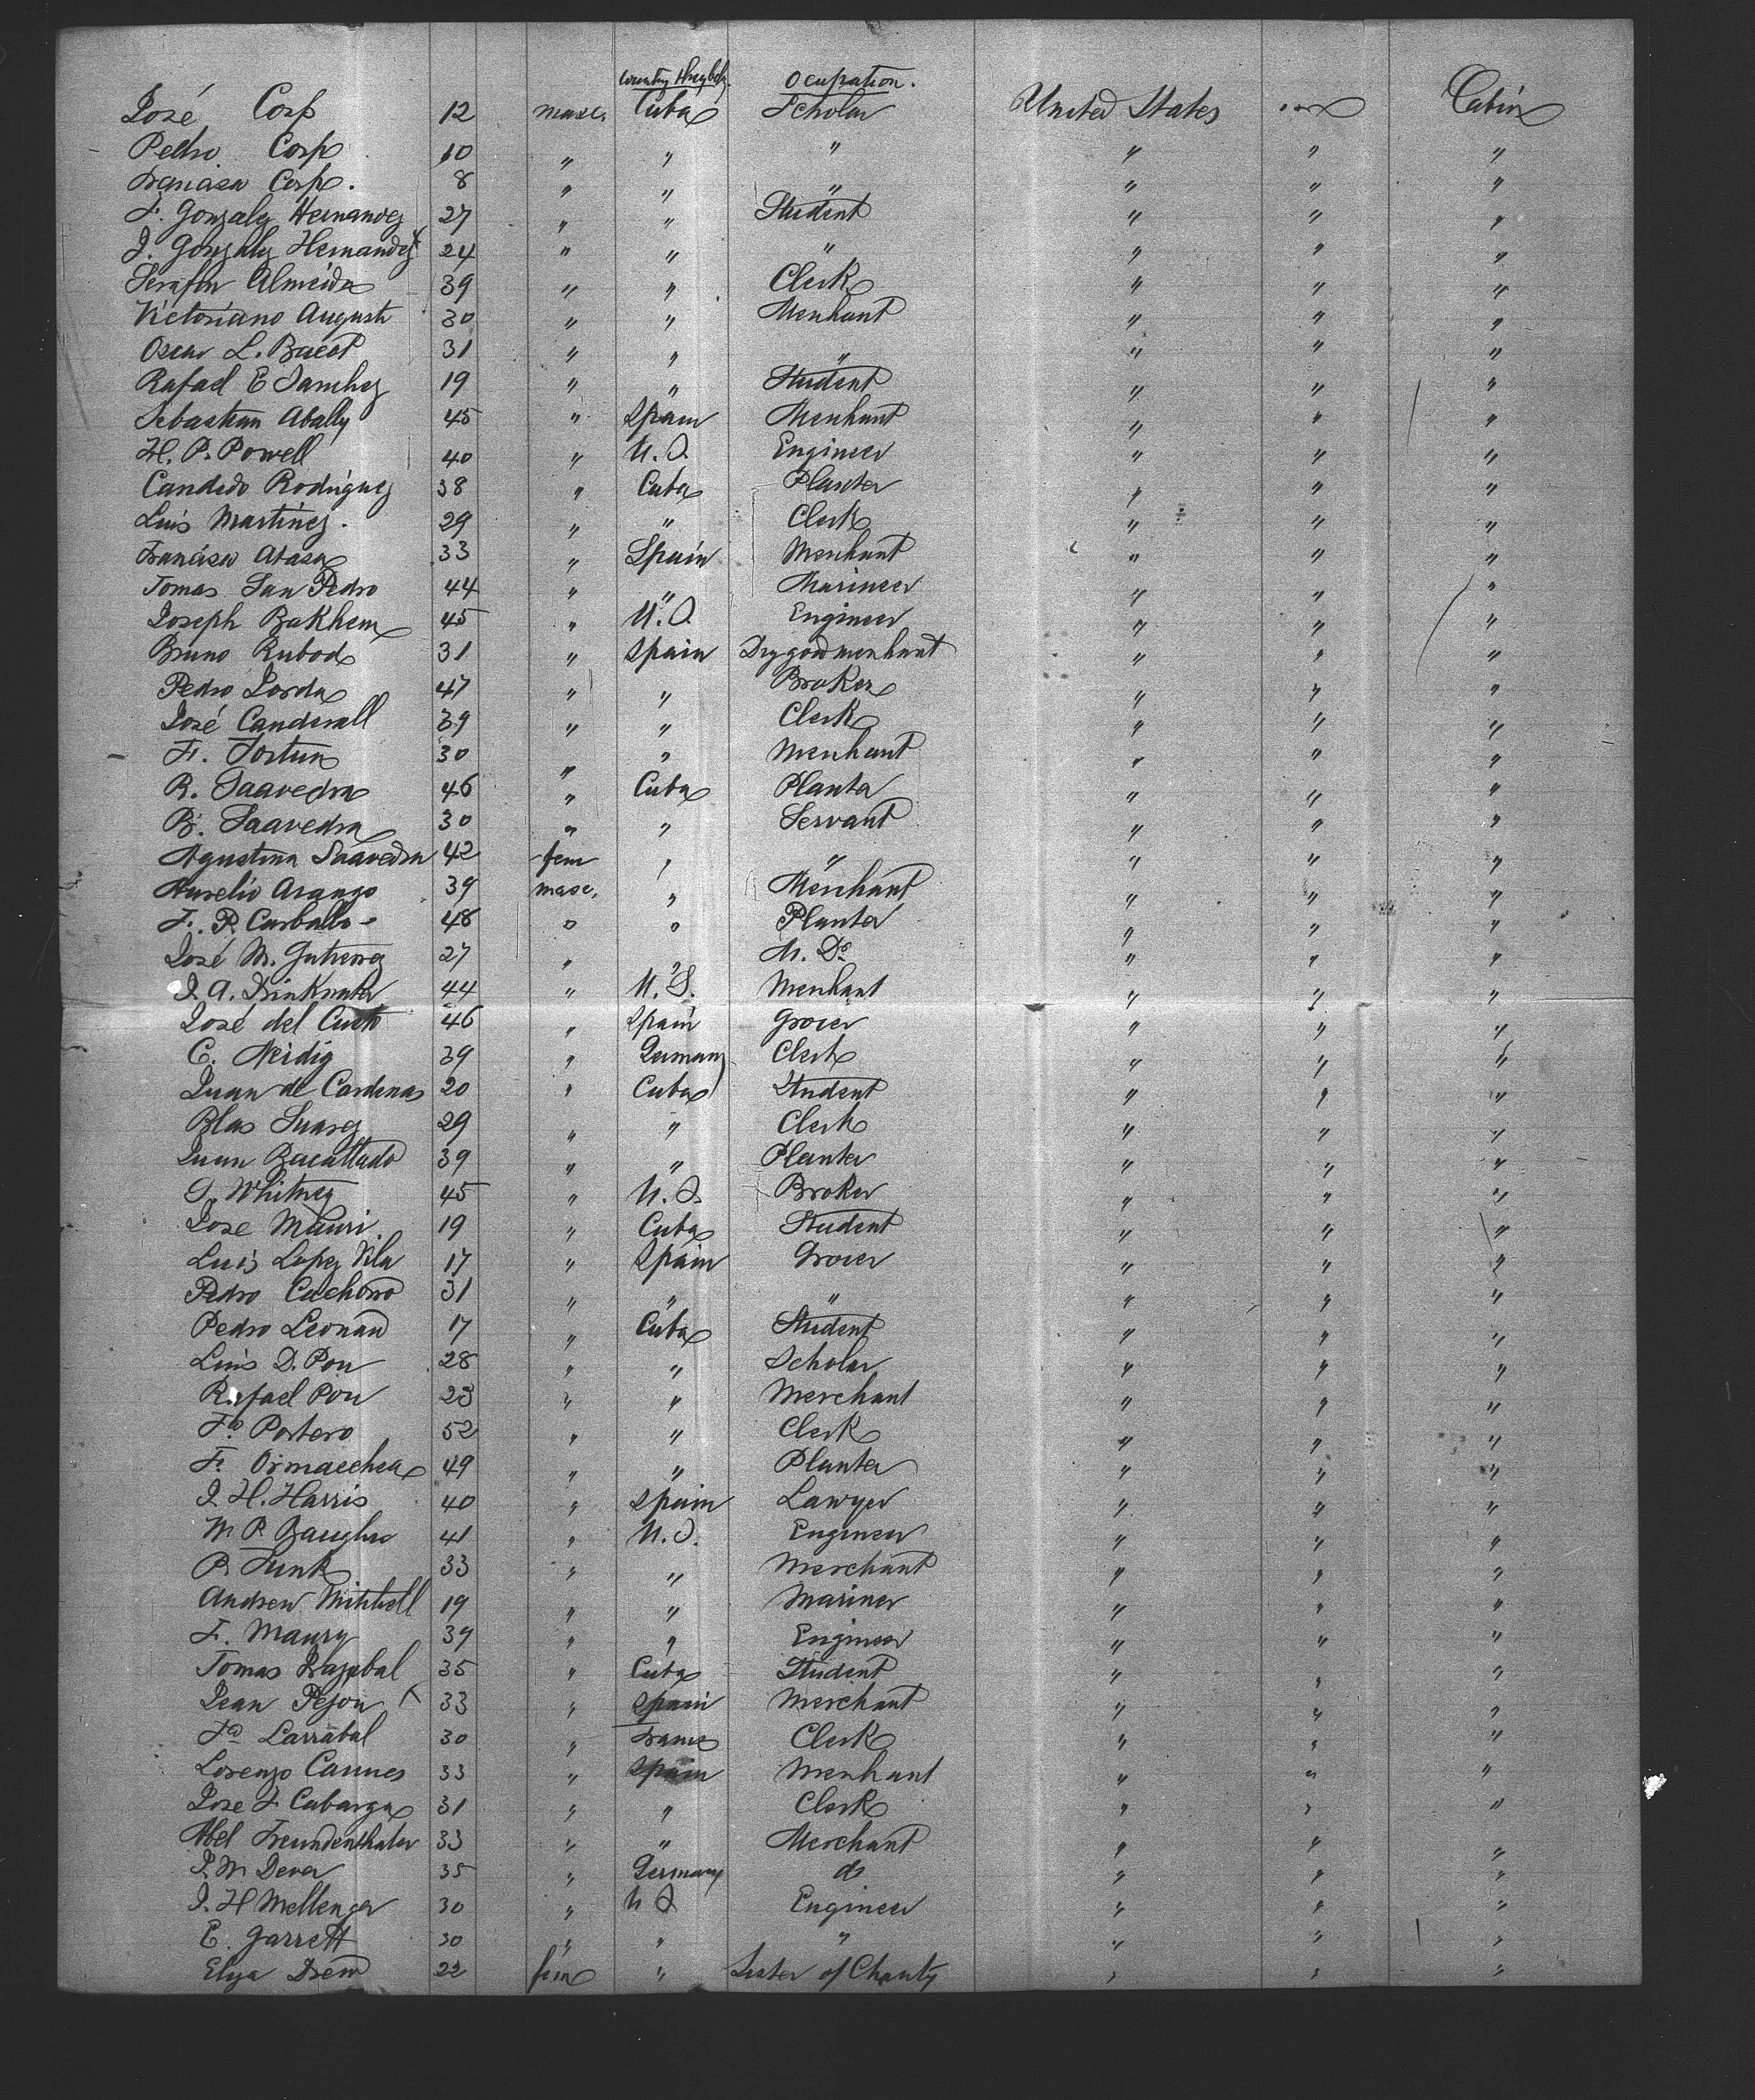 Country they belg. Ocupation.
José Corp 12 masc. Cuba Scholar United States Cabin
Pedro Corp 10 " " " " " "
Francisco Corp. 8 " " " " " "
F. Gonzalez Hernandez 27 " " Student " " "
J. Gonzalez Hernandez 24 " " " " " "
Serafin Almeida 39 " " Clerk " " "
Victoriano August 30 " " Merchant " " "
Oscar L. Bacot 31 " " " " " "
Rafael E Sanchez 19 " " Student " " "
Sebastian Abally 45 " Spain Merchant " " "
H. P. Powell 40 " U.S. Engineer " " "
Candido Rodriguez 38 " Cuba Planter " " "
Luis Martinez. 29 " " Clerk " " "
Francisco Atasa 33 " Spain Merchant " " "
Tomas San Pedro 44 " " Marineer " " "
Joseph Bakhem 45 " U.S. Engineer " " "
Bruno Rubod 31 " Spain Drygood merchant " " "
Pedro Lorda 47 " " Broker " " "
José Canderall 39 " " Clerk " " "
F. Fortun 30 " " Merchant " " "
R. Saavedra 46 " Cuba Planter " " "
B. Saavedra 30 " " Servant " " "
Agustina Saavedra 42 fem " " " " "
Aurelio Arango 39 masc. " Merchant " " "
F. P. Carballo 48 " " Planter " " "
José M. Gutierrez 27 " " M. D. " " "
J. A. Drinkwater 44 " U.S. Merchant " " "
José del Cueto 46 " Spain Grocer " " "
C. Neidig 39 " Germany Clerk " " "
Juan de Cardenas 20 " Cuba Student " " "
Blas Suarez 29 " " Clerk " " "
Juan Bacallado 39 " " Planter " " "
D. Whitney 45 " U.S. Broker " " "
Jose Mauri 19 " Cuba Student " " "
Luis Lopez Vila 17 " Spain Grocer " " "
Pedro Cachorro 31 " " " " " "
Pedro Leonard 17 " Cuba Student " " "
Luis D. Pou 28 " " Scholar " " "
Rafael Pou 23 " " Merchant " " "
Fo Portero 52 " " Clerk " " "
F. Ormaechea 49 " " Planter " " "
J. H. Harris 40 " Spain Lawyer " " "
W. P. Baugher 41 " U.S. Engineer " " "
P. Funk 33 " " Merchant " " "
Andrew Mitchell 19 " " Mariner " " "
F. Maury 39 " " Engineer " " "
Tomas Brazabal 35 " Cuba Student " " "
Jean Pejou 33 " Spain Merchant " " "
Fo Larrabal 30 " France Clerk " " "
Lorenzo Caunes 33 " Spain Merchant " " "
Jose F Cabarga 31 " " Clerk " " "
Abel Freundenthaler 33 " " Merchant " " "
J. W Dever 35 " Germany do " " "
J. H Mellenger 30 " U S Engineer " " "
E. Garrett 30 " " " " " "
Eliza Drew 22 fem " Sister of Charity " " "